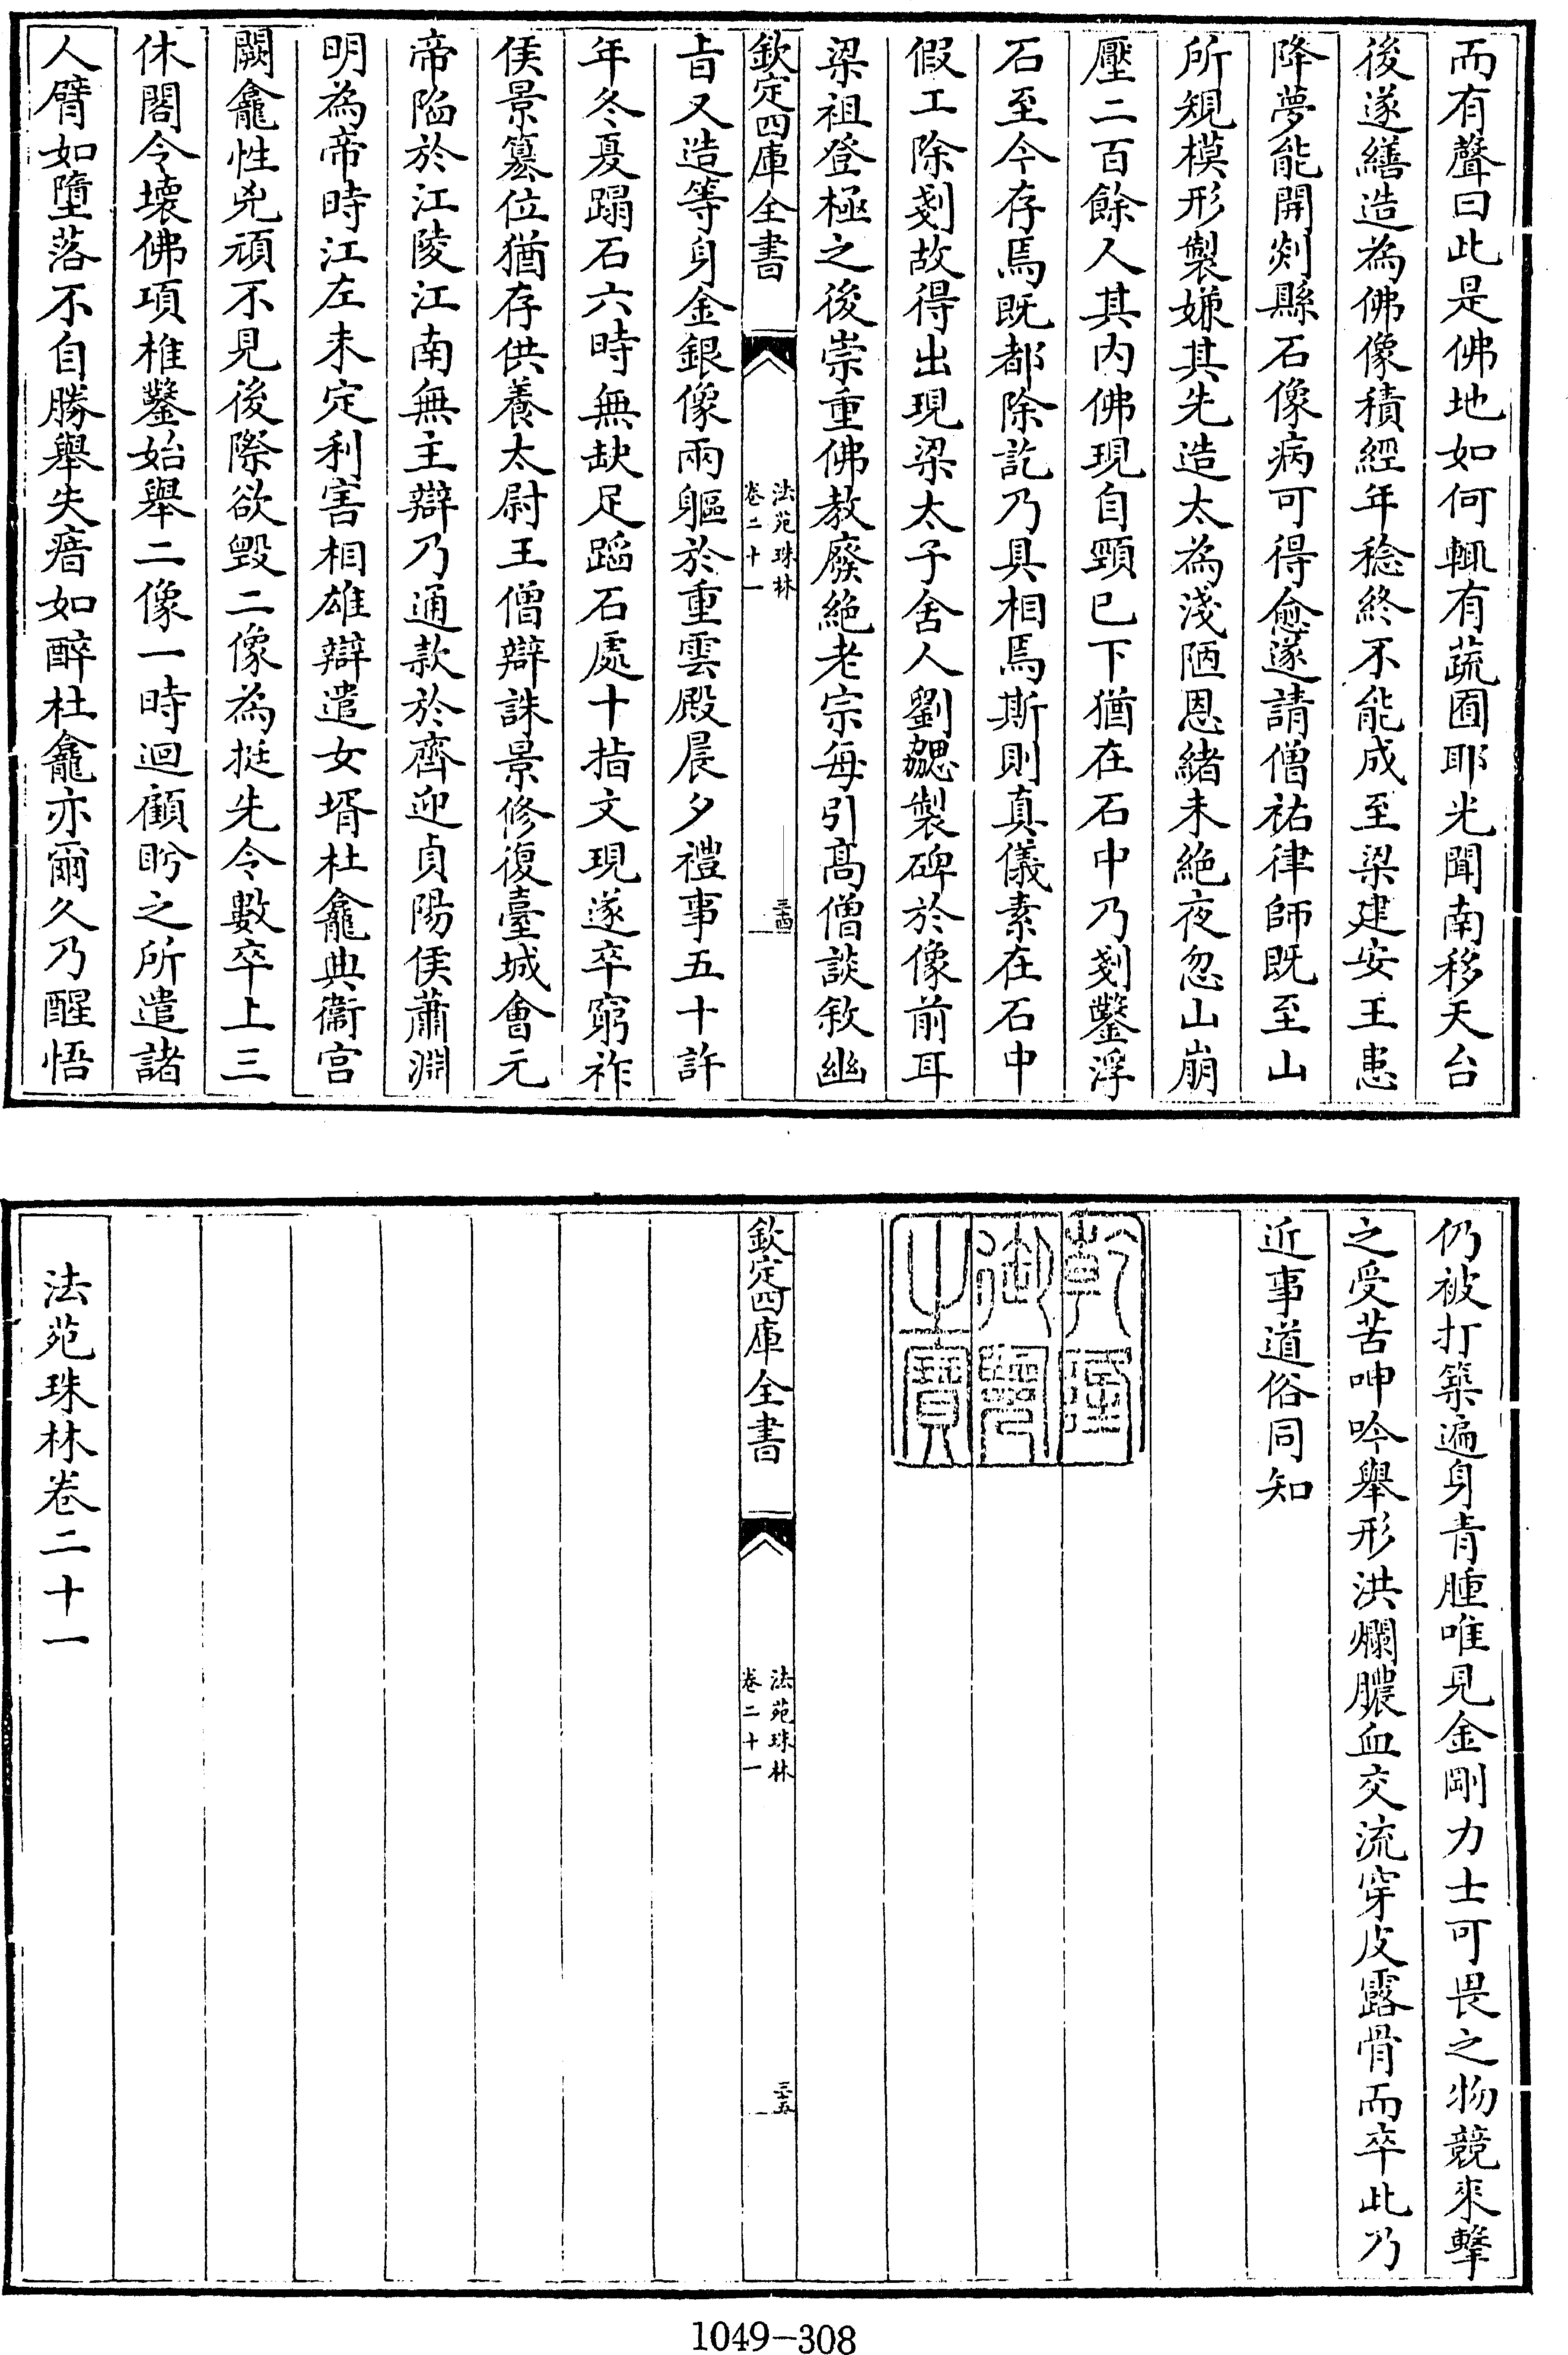 而有聲曰此是佛地如何輒有蔬圃耶光聞南移天台
後遂繕造為佛像積經年稔終不能成至梁建安王患
降夢能開剡縣石像病可得愈遂請僧祐律師既至山
所規模形製嫌其先造太為淺陋思緒未絕夜忽山崩
壓二百餘人其內佛現自頸已下猶在石中乃剗鑿浮
石至今存焉既都除訖乃具相焉斯則真儀素在石中
假工除剗故得出現梁太子舍人劉勰製碑於像前耳
梁祖登極之後崇重佛教廢絕老宗每引高僧談敘幽
欽定四庫全書
法苑珠林
卷二十一
三十四
旨又造等身金銀像兩軀於重雲殿晨夕禮事五十許
年冬夏蹋石六時無缺足蹈石處十指文現遂卒窮祚
侯景篡位猶存供養太尉王僧辯誅景修復臺城會元
帝陷於江陵江南無主辯乃通款於齊迎貞陽侯蕭淵
明為帝時江左未定利害相雄辯遣女壻杜龕典衞宮
闕龕性兇頑不見後際欲毀二像為挺先令數卒上三
休閣令壞佛項椎鑿始舉二像一時迴顧盻之所遣諸
人臂如墮落不自勝舉失瘖如醉杜龕亦爾久乃醒悟
仍被打築遍身青腫唯見金剛力士可畏之物競來擊
之受苦呻吟舉形洪爛膿血交流穿皮露骨而卒此乃
近事道俗同知
乾隆
御覽
之寶
欽定四庫全書
法苑珠林
卷二十一
三十五
法苑珠林卷二十一
1049-308